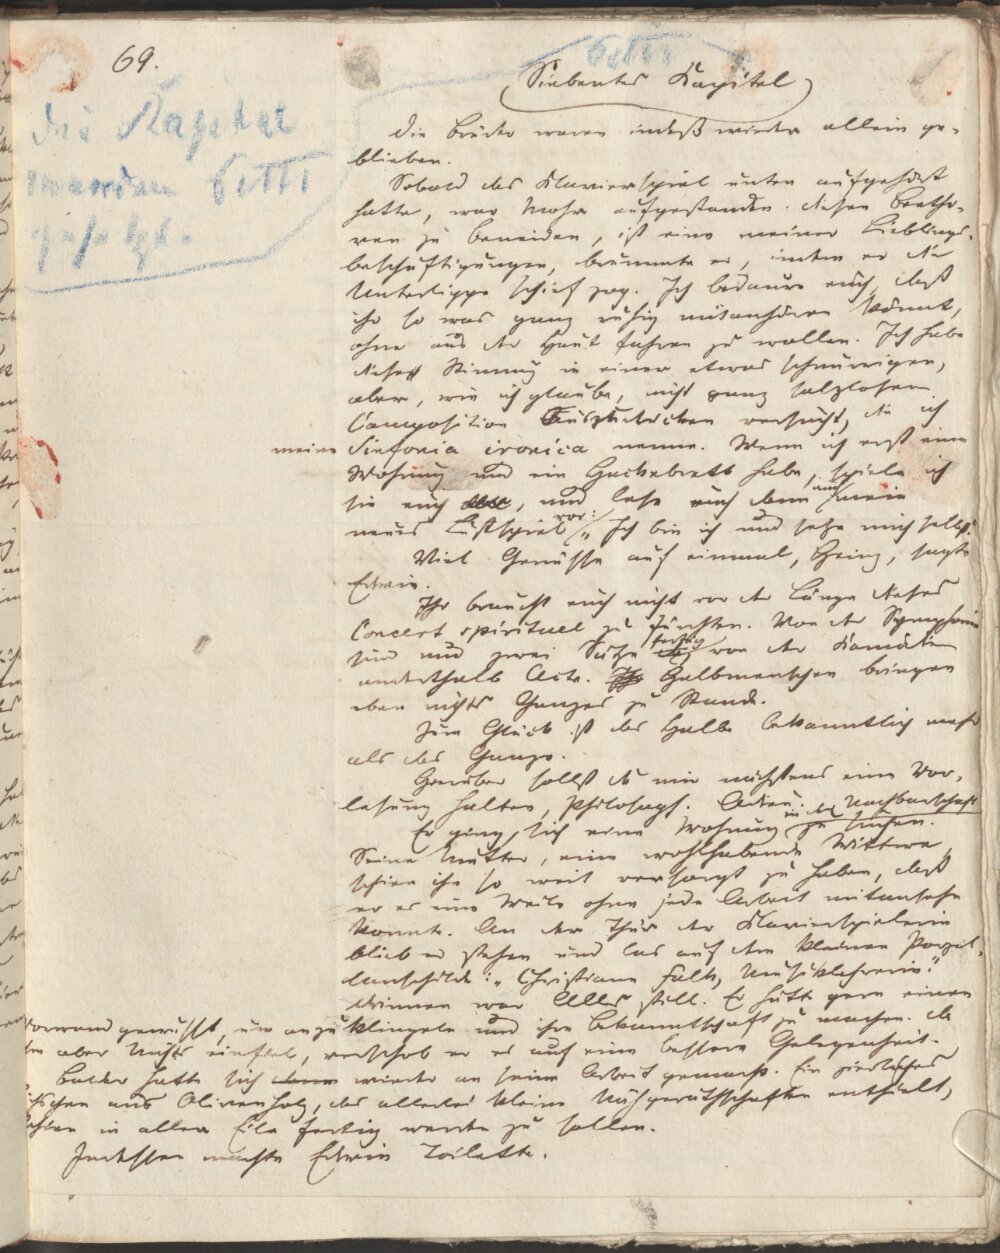 69.
bitte
Siebentes Kapitel
Die Kapitel
werden bitte
gesetzt.
Die Brüder waren indeß wieder allein ge-
blieben.
Sobald das Klavierspiel unten aufgehört
hatte, war Mohr aufgestanden. Diesen Beetho-
ven zu beneiden, ist eine meiner Lieblings-
beschäftigungen, brummte er, indem er die
Unterlippe schief zog. Ich bedaure euch, daß
ihr so was ganz ruhig mitanhören könnt,
ohne aus der Haut fahren zu wollen. Ich habe
diese Stimmung in einer etwas schnurrigen,
aber, wie ich glaube, nicht ganz salzlosen
Composition auszudrücken versucht, die ich
meine Sinfonia ironica nenne. Wenn ich erst eine
Wohnung und ein Hackebrett habe, spiele ich
sie euch, und lese euch dann auch mein
neues Lustspiel vor: „Ich bin ich und setze mich selbst."
Viel Genüsse auf einmal, Heinz, sagte
Edwin.
Ihr braucht euch nicht vor der Länge dieses
Concert spirituel zu fürchten. Von der Symphonie
sind nur zwei Sätze fertig, von der Komödie
anderthalb Acte. Halbmenschen bringen
eben nichts Ganzes zu Stande.
Zum Glück ist das Halbe bekanntlich mehr
als das Ganze.
Hierüber sollst du mir nächstens eine Vor-
lesung halten, Philosoph. Adieu.
Er ging, sich eine Wohnung in der Nachbarschaft zu suchen.
Seine Mutter, eine wohlhabende Wittwe,
schien ihn so weit versorgt zu haben, daß
er es eine Weile ohne jede Arbeit mitansehn
konnte. An der Thür der Klavierspielerin
blieb er stehen und las auf dem kleinen Porzel-
lanschilde: „Christiane Falk, Musiklehrerin."
Drinnen war Alles still. Er hätte gern einen
Vorwand gewußt, um anzuklingeln und ihre Bekanntschaft zu machen. Da
ihm aber Nichts einfiel, verschob er es auf eine bessere Gelegenheit.
Balder hatte sich wieder an seine Arbeit gemacht. Ein zierliches
aus Olivenholz, das allerlei kleine Nähgeräthschaften enthielt,
schien in aller Eile fertig werden zu sollen.
Indessen machte Edwin Toilette.